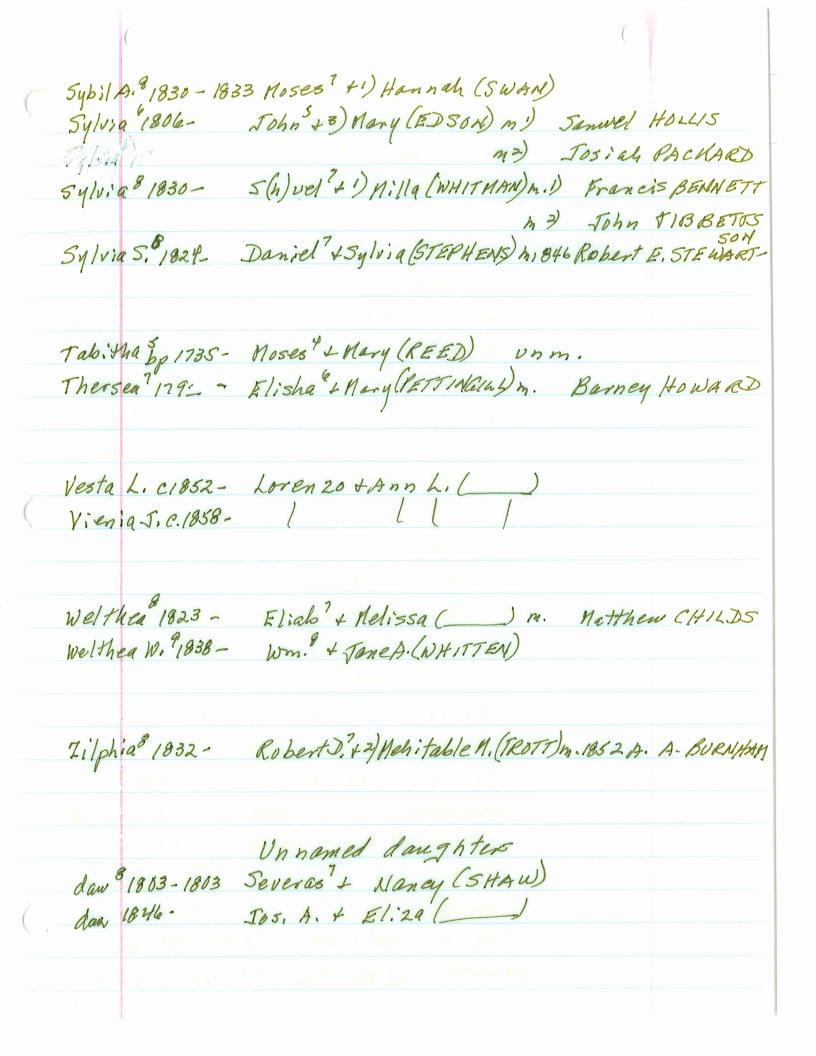 Sybil A.⁸ 1830 - 1833 Moses⁷ +1) Hannah (SWAN)
Sylvia⁶ 1806- John⁵ + 3) Mary (EDSON) m 1) Samuel HOLLIS
m 2) Josiah PACKARD
Sylvia⁸ 1830 - S(h)uel⁷ + 1) Milla (WHITMAN) m. 1) Francis BENNETT
m 2) John TIBBETTS
Sylvia S.⁸ 1824- Daniel⁷ + Sylvia (STEPHENS) m 1846 Robert E. STEWART-
SON
Tabitha⁵ bp 1735- Moses⁴ + Mary (REED) unm.
Thersea⁷ 179_ - Elisha⁶ + Mary (PETTINGILL) m. Barney HOWARD
Vesta L. c1852- Lorenzo + Ann L. (____)
Vienia J. c.1858-
Welthea⁸ 1823 - Eliab⁷ + Melissa (____) m. Matthew CHILDS
Welthea W.⁹ 1838 - Wm.⁸ + Jane A. (WHITTEN)
Zilphia⁸ 1832 - Robert D.⁷ + 2) Mehitable M. (TROTT) m. 1852 A. A. BURNHAM
Unnamed daughters
dau⁸ 1803-1803 Severas⁷ + Nancy (SHAW)
dau 1846- Jos. A. + Eliza (____)